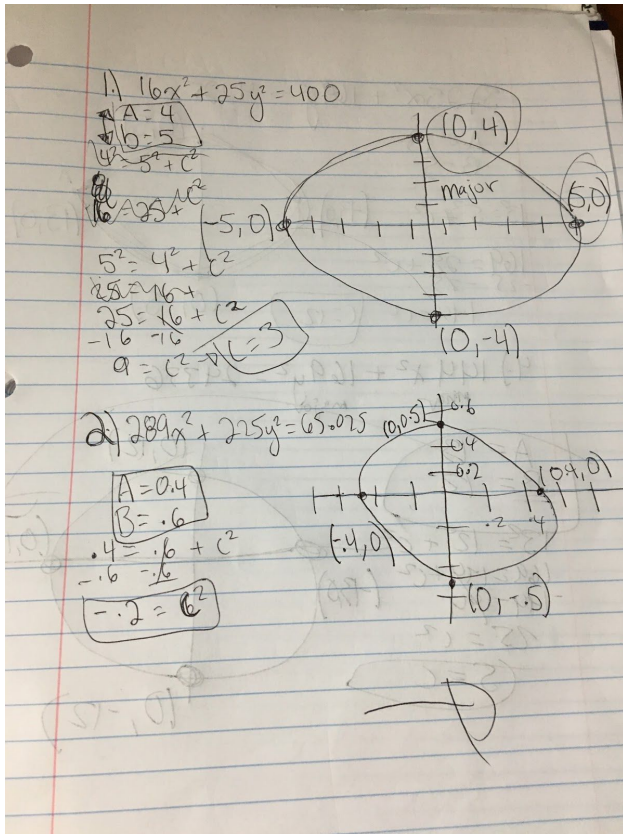 1.) 16x² + 25y² = 400
A = 4
b = 5
4² = 5² + c²
16 = 25 + c²
5² = 4² + c²
25 = 16 +
25 = 16 + c²
-16 -16
9 = c² → c = 3
(0, 4)
major
(5, 0)
(-5, 0)
(0, -4)
2.) 289x² + 225y² = 65.025
A = 0.4
B = .6
.4 = .6 + c²
-.6 = .6
-.2 = c²
(0, 0.5)
0.6
0.4
0.2
(0.4, 0)
.2 .4
(-.4, 0)
(0, -.5)